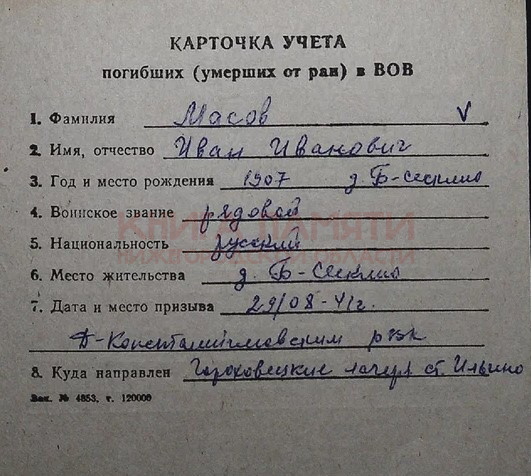 КАРТОЧКА УЧЕТА
погибших (умерших от ран) в ВОВ
1. Фамилия Масов V
2. Имя, отчество Иван Иванович
3. Год и место рождения 1907 д. Б-Сескино
4. Воинское звание рядовой
5. Национальность русский
6. Место жительства д. Б-Сескино
7. Дата и место призыва 29/08-41г.
Д-Константиновским рвк
8. Куда направлен Гороховецкие лагеря ст. Ильино
Зак. № 4853, т. 120000
КНИГА ПАМЯТИ
НИЖЕГОРОДСКОЙ ОБЛАСТИ